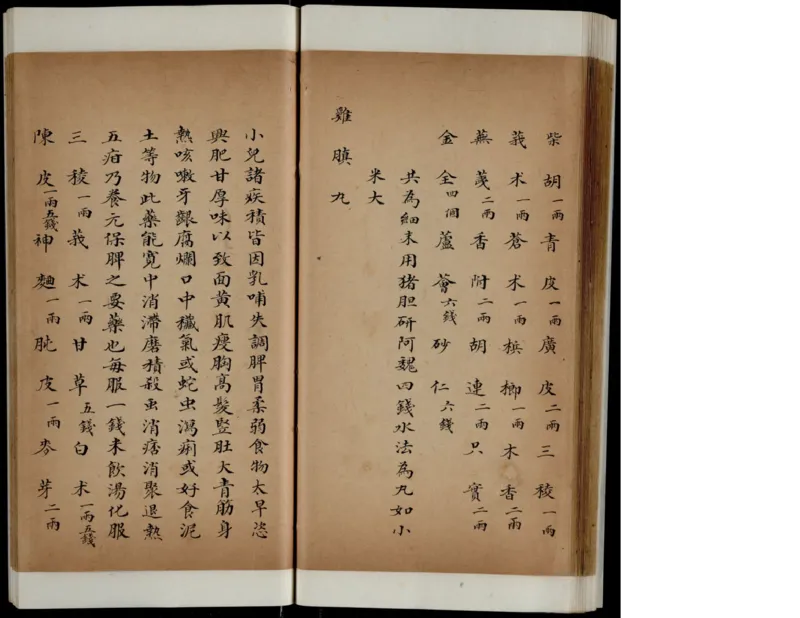 柴胡一兩青皮一兩廣皮二兩三稜一兩
莪朮一兩蒼朮一兩檳榔一兩木香二兩
蕪荑二兩香附二兩胡連二兩只實二兩
金全四個蘆薈六錢砂仁六錢
共為細末用猪胆研阿魏四錢水法為丸如小
米大
雞脤丸
小兒諸疾積皆因乳哺失調脾胃柔弱食物太早恣
興肥甘厚味以致面黃肌瘦胸高髮豎肚大青筋身
熱咳嗽牙齦腐爛口中穢氣或蛇虫瀉痢或好食泥
土等物此藥能寬中消滯磨積殺虫消痞消聚退熱
五疳乃養元保脾之要藥也每服一錢米飲湯化服
三稜一兩莪朮一兩甘草五錢白朮一兩五錢
陳皮一兩五錢神麯一兩肫皮一兩麥芽二兩